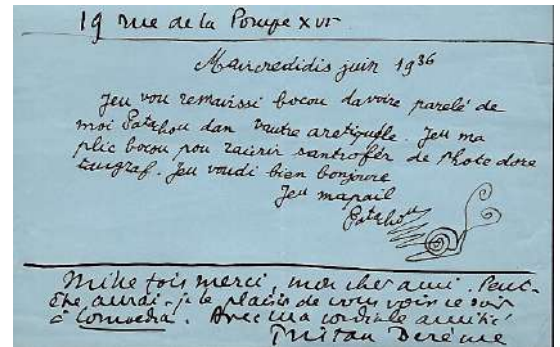 19 rue de la Pompe XVI
Maircredidis juin 1936
Jeu vou remairssi bocou davoire parelé de
moi Patachou dan vautre aretiquele. Jeu ma
plic bocou pou zaicrir santrofér de phote dore
taugraf. Jeu voudi bien bonjoure
Jeu mapail
Patachou
Mille fois merci, mon cher ami. Peut-
être aurai-je le plaisir de vous voir ce soir
à Comoedia. Avec ma cordiale amitié
Tristan Derème